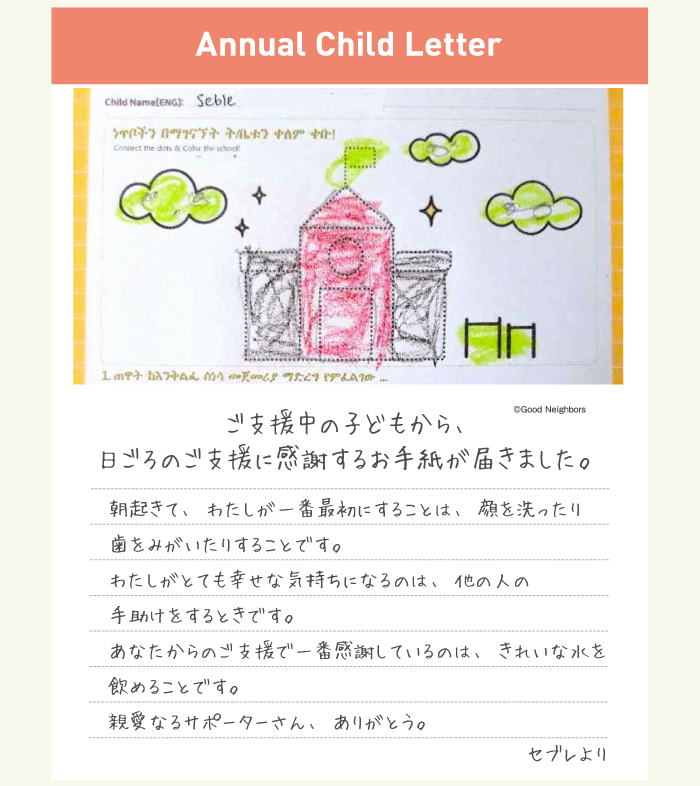 Annual Child Letter
Child Name[ENG]: Seble
ነጥቦችን በማገናኘት ት/ቤቱን ቀለም ቀቡ!
Connect the dots & Color the school!
1. ጠዋት ከእንቅልፌ ስነሳ መጀመሪያ ማድረግ የምፈልገው ...
©Good Neighbors
ご支援中の子どもから、
日ごろのご支援に感謝するお手紙が届きました。
朝起きて、わたしが一番最初にすることは、顔を洗ったり
歯をみがいたりすることです。
わたしがとても幸せな気持ちになるのは、他の人の
手助けをするときです。
あなたからのご支援で一番感謝しているのは、きれいな水を
飲めることです。
親愛なるサポーターさん、ありがとう。
セブレより